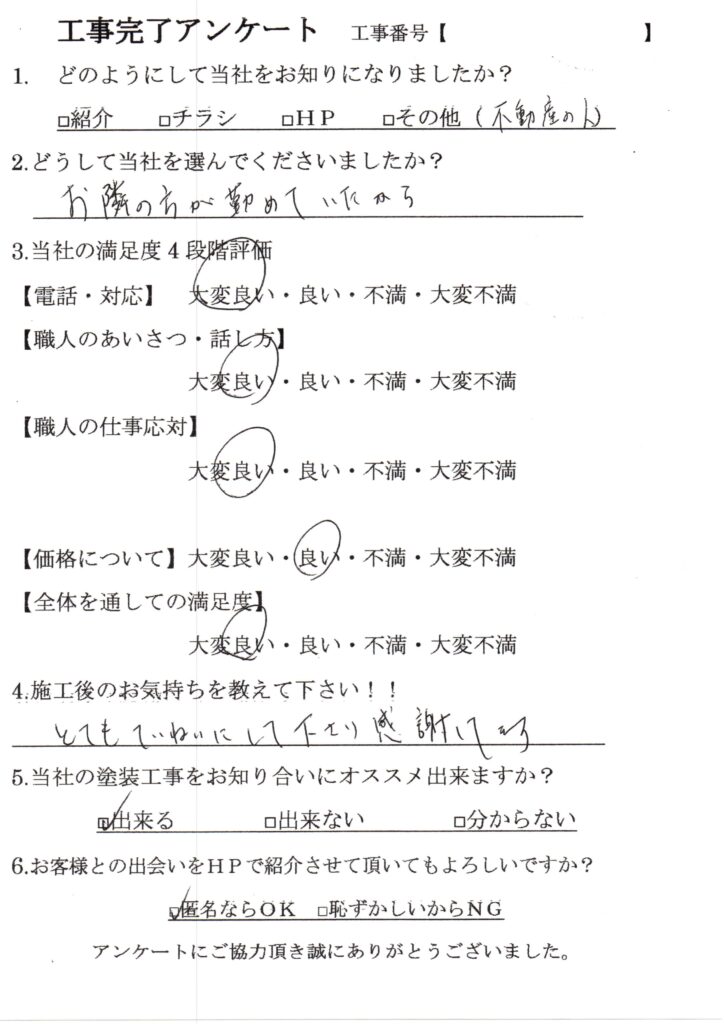 工事完了アンケート 工事番号【 】
1. どのようにして当社をお知りになりましたか？
□紹介 □チラシ □HP □その他（不動産の人）
2.どうして当社を選んでくださいましたか？
お隣の方が勤めていたから
3.当社の満足度4段階評価
【電話・対応】 大変良い・良い・不満・大変不満
【職人のあいさつ・話し方】
大変良い・良い・不満・大変不満
【職人の仕事応対】
大変良い・良い・不満・大変不満
【価格について】大変良い・良い・不満・大変不満
【全体を通しての満足度】
大変良い・良い・不満・大変不満
4.施工後のお気持ちを教えて下さい！！
とてもていねいにして下さり感謝してます
5.当社の塗装工事をお知り合いにオススメ出来ますか？
☑出来る □出来ない □分からない
6.お客様との出会いをHPで紹介させて頂いてもよろしいですか？
☑匿名ならOK □恥ずかしいからNG
アンケートにご協力頂き誠にありがとうございました。